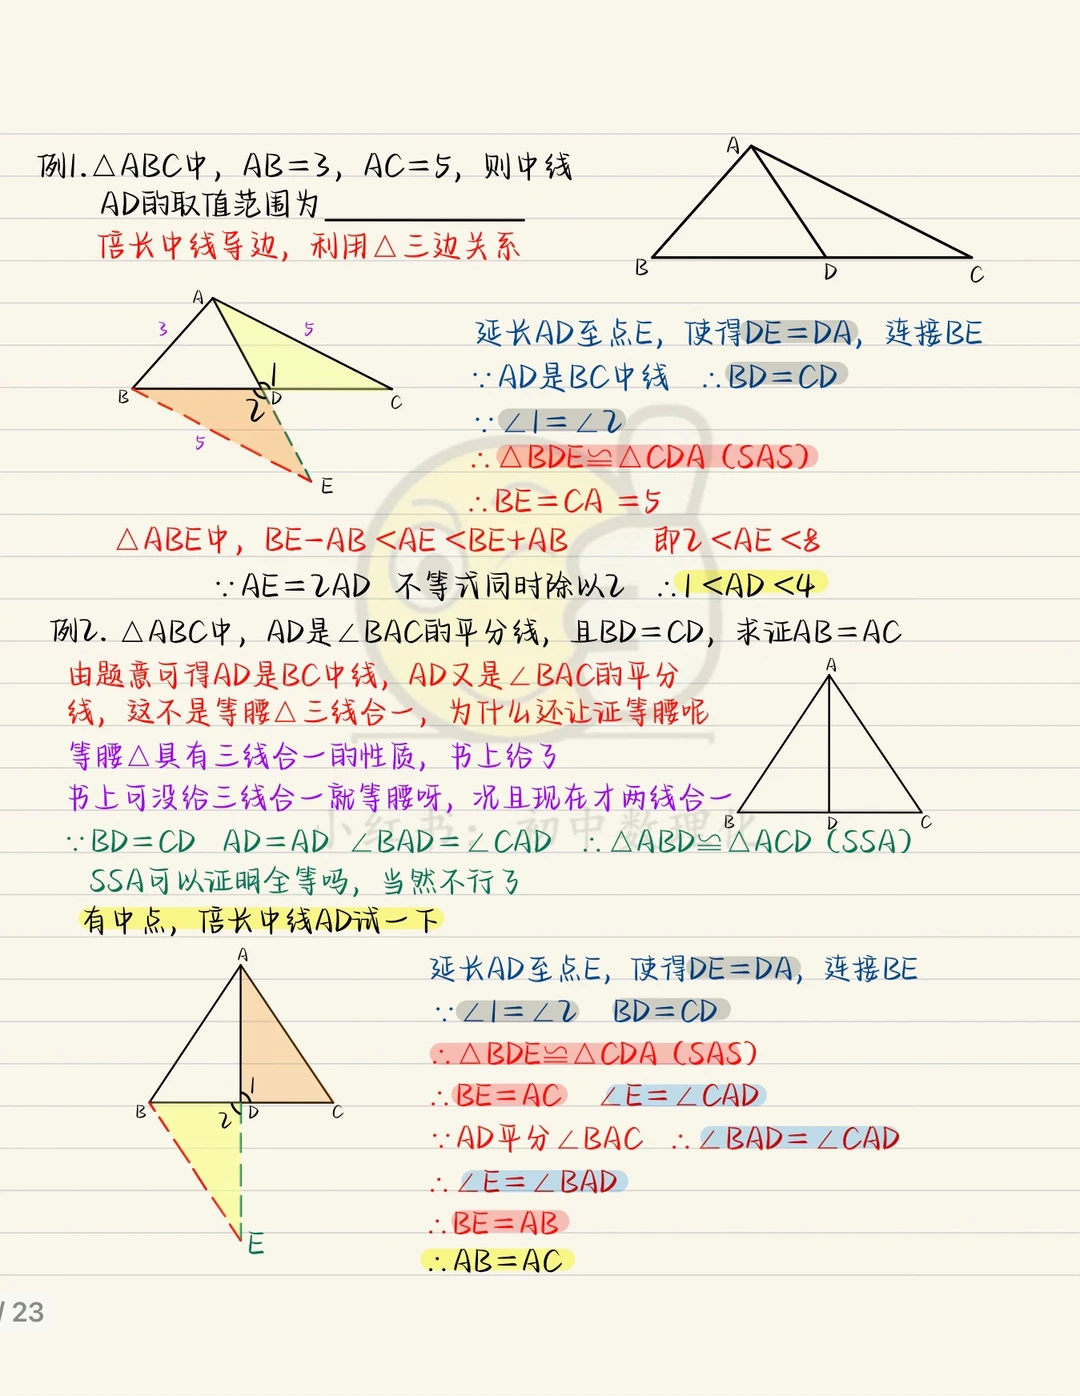 例1.△ABC中，AB=3，AC=5，则中线
AD的取值范围为
倍长中线导边，利用△三边关系
A
B
D
C
A
3
5
1
B
2
D
C
5
E
延长AD至点E，使得DE=DA，连接BE
∵AD是BC中线 ∴BD=CD
∵∠1=∠2
∴△BDE≌△CDA（SAS）
∴BE=CA=5
△ABE中，BE-AB<AE<BE+AB 即2<AE<8
∵AE=2AD 不等式同时除以2 ∴1<AD<4
例2.△ABC中，AD是∠BAC的平分线，且BD=CD，求证AB=AC
由题意可得AD是BC中线，AD又是∠BAC的平分
线，这不是等腰△三线合一，为什么还让证等腰呢
等腰△具有三线合一的性质，书上给了
书上可没给三线合一就等腰呀，况且现在才两线合一
A
B
D
C
小红书：初中数理化
∵BD=CD AD=AD ∠BAD=∠CAD ∴△ABD≌△ACD（SSA）
SSA可以证明全等吗，当然不行了
有中点，倍长中线AD试一下
A
1
B
2
D
C
E
延长AD至点E，使得DE=DA，连接BE
∵∠1=∠2 BD=CD
∴△BDE≌△CDA（SAS）
∴BE=AC ∠E=∠CAD
∵AD平分∠BAC ∴∠BAD=∠CAD
∴∠E=∠BAD
∴BE=AB
∴AB=AC
/ 23